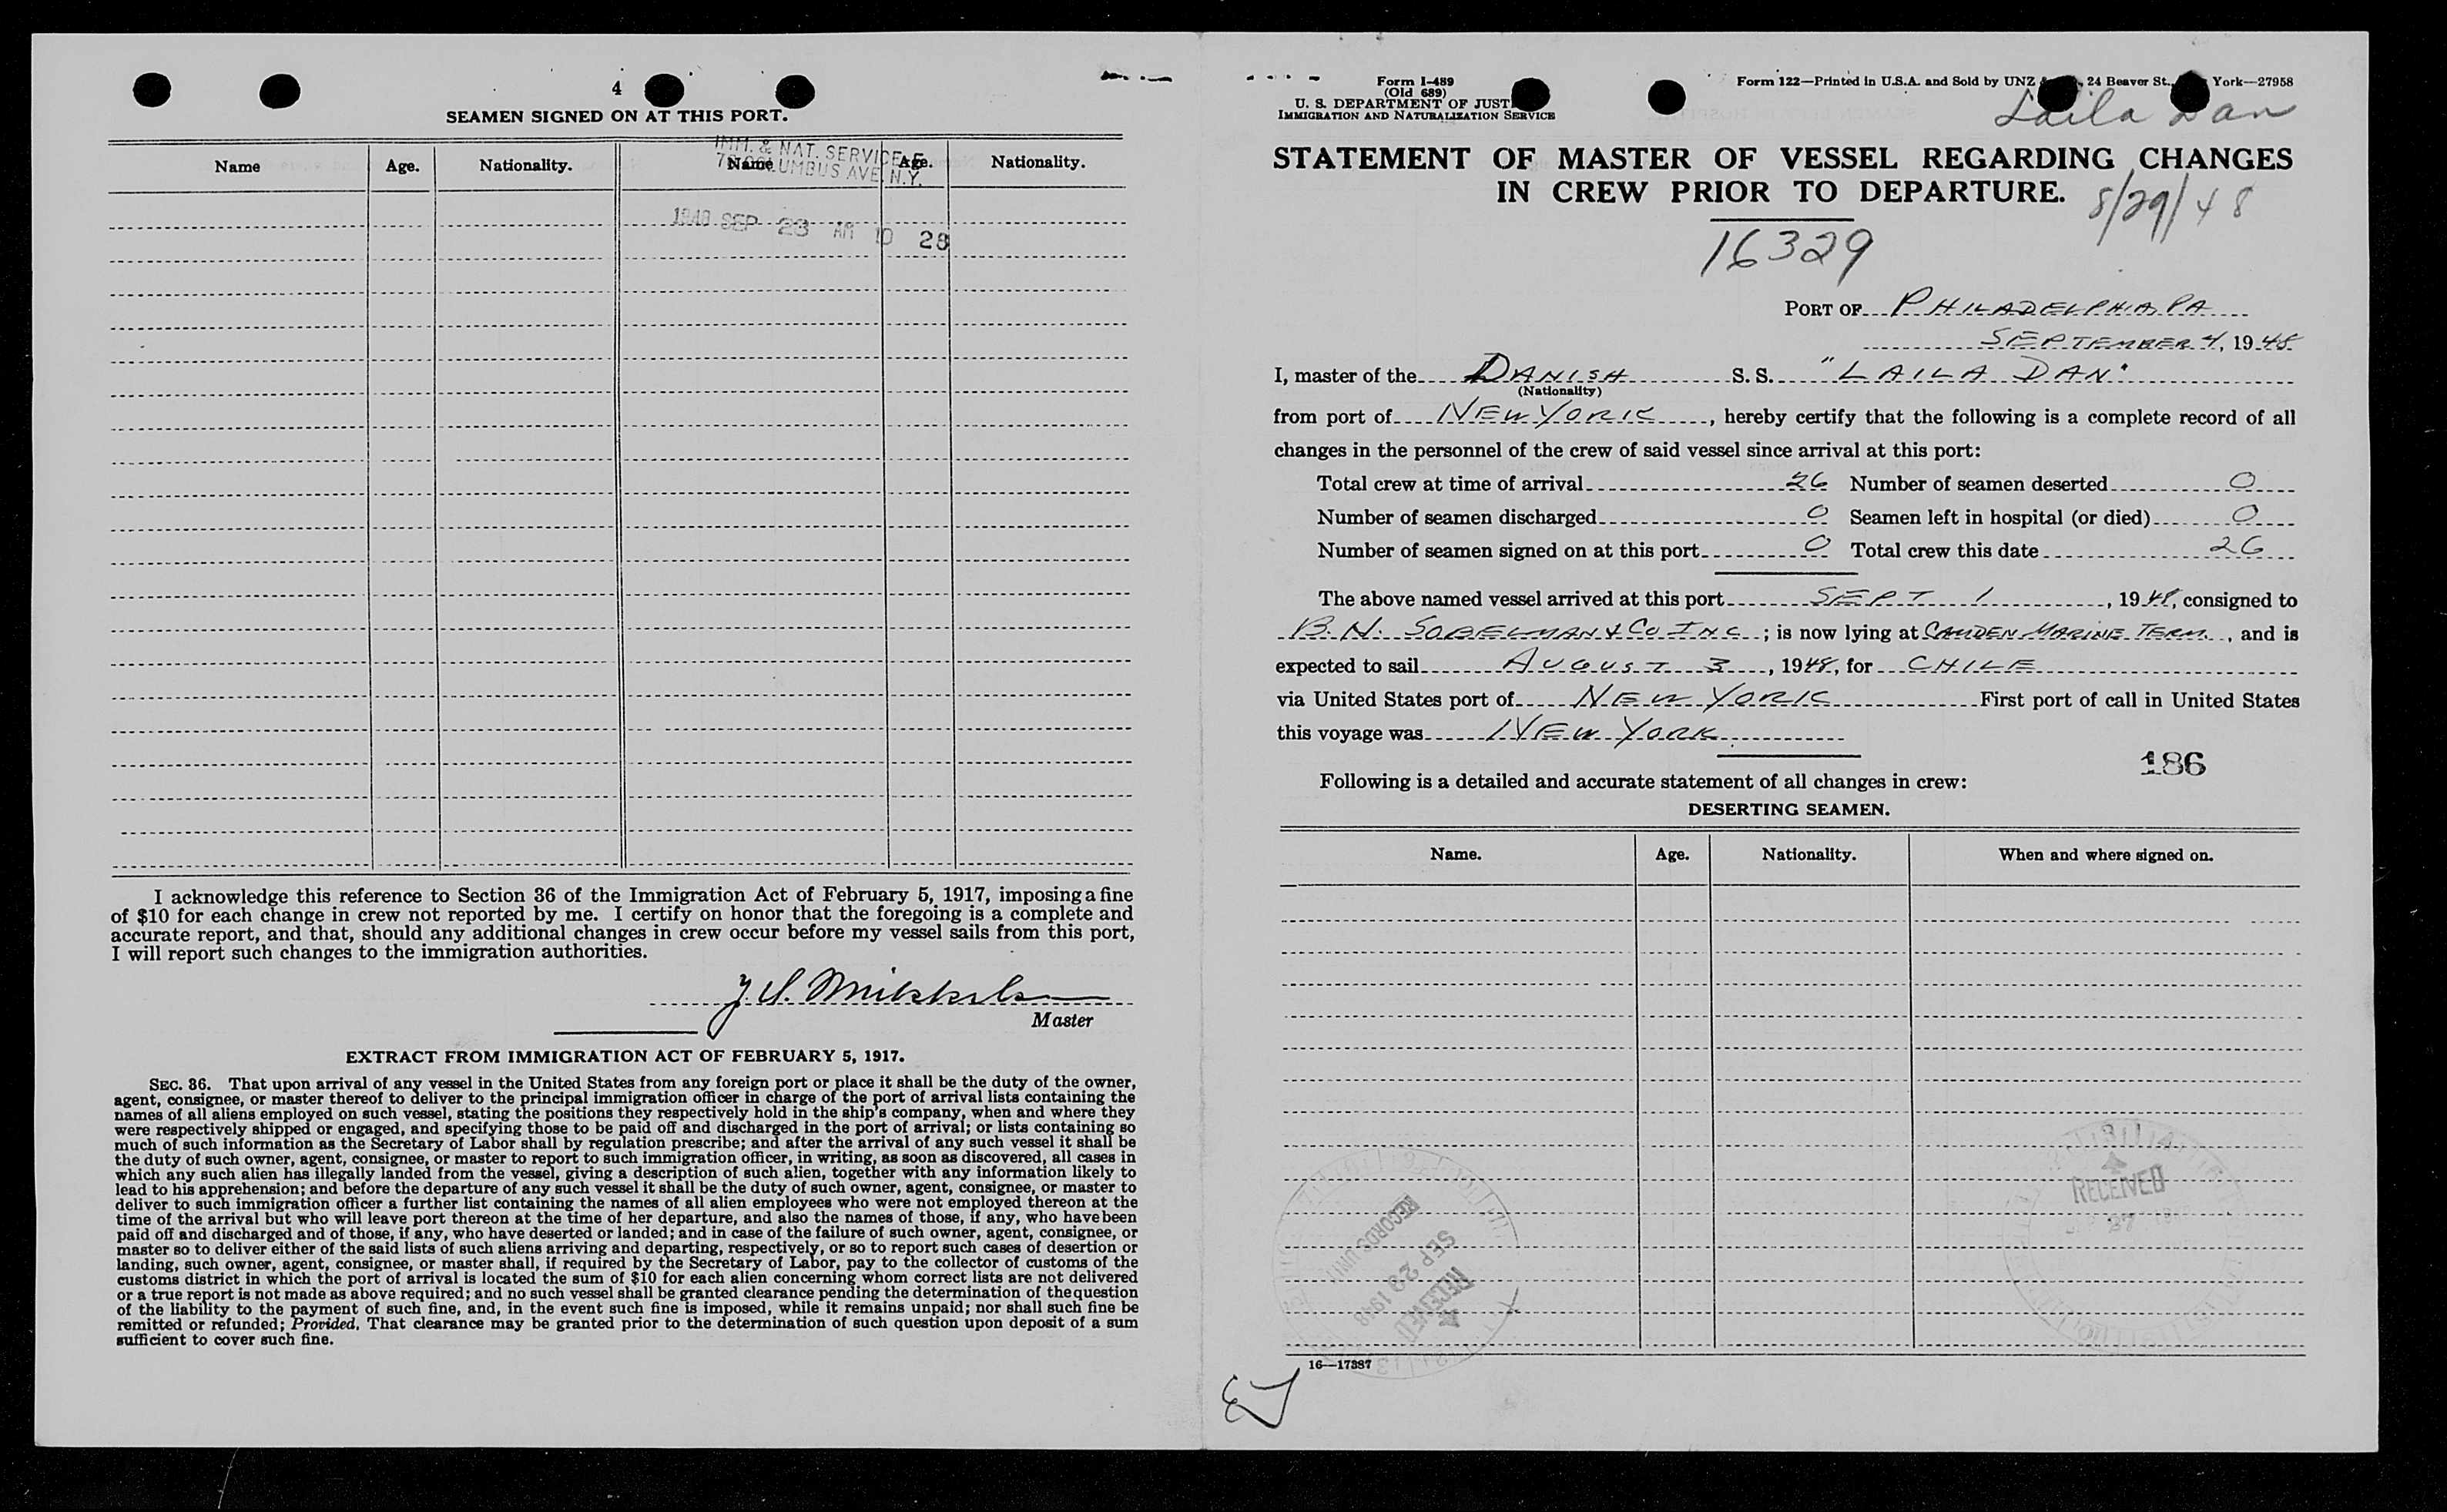 4
SEAMEN SIGNED ON AT THIS PORT.
IMM. & NAT. SERVICE
COLUMBUS AVE. N.Y.
Name Age. Nationality. Name Age. Nationality.
1948 SEP 23 AM 10 28
I acknowledge this reference to Section 36 of the Immigration Act of February 5, 1917, imposing a fine
of $10 for each change in crew not reported by me. I certify on honor that the foregoing is a complete and
accurate report, and that, should any additional changes in crew occur before my vessel sails from this port,
I will report such changes to the immigration authorities.
Master
EXTRACT FROM IMMIGRATION ACT OF FEBRUARY 5, 1917.
SEC. 36. That upon arrival of any vessel in the United States from any foreign port or place it shall be the duty of the owner,
agent, consignee, or master thereof to deliver to the principal immigration officer in charge of the port of arrival lists containing the
names of all aliens employed on such vessel, stating the positions they respectively hold in the ship's company, when and where they
were respectively shipped or engaged, and specifying those to be paid off and discharged in the port of arrival; or lists containing so
much of such information as the Secretary of Labor shall by regulation prescribe; and after the arrival of any such vessel it shall be
the duty of such owner, agent, consignee, or master to report to such immigration officer, in writing, as soon as discovered, all cases in
which any such alien has illegally landed from the vessel, giving a description of such alien, together with any information likely to
lead to his apprehension; and before the departure of any such vessel it shall be the duty of such owner, agent, consignee, or master to
deliver to such immigration officer a further list containing the names of all alien employees who were not employed thereon at the
time of the arrival but who will leave port thereon at the time of her departure, and also the names of those, if any, who have been
paid off and discharged and of those, if any, who have deserted or landed; and in case of the failure of such owner, agent, consignee, or
master so to deliver either of the said lists of such aliens arriving and departing, respectively, or so to report such cases of desertion or
landing, such owner, agent, consignee, or master shall, if required by the Secretary of Labor, pay to the collector of customs of the
customs district in which the port of arrival is located the sum of $10 for each alien concerning whom correct lists are not delivered
or a true report is not made as above required; and no such vessel shall be granted clearance pending the determination of the question
of the liability to the payment of such fine, and, in the event such fine is imposed, while it remains unpaid; nor shall such fine be
remitted or refunded; Provided, That clearance may be granted prior to the determination of such question upon deposit of a sum
sufficient to cover such fine.
Form I-489
(Old 689)
U. S. DEPARTMENT OF JUST
IMMIGRATION AND NATURALIZATION SERVICE
Form 122—Printed in U.S.A. and Sold by UNZ & 24 Beaver St., York—27958
Laila Dan
STATEMENT OF MASTER OF VESSEL REGARDING CHANGES
IN CREW PRIOR TO DEPARTURE.
8/29/48
16329
PORT OF PHILADELPHIA PA
SEPTEMBER 4, 1948
I, master of the DANISH S. S. "LAILA DAN"
(Nationality)
from port of NEW YORK, hereby certify that the following is a complete record of all
changes in the personnel of the crew of said vessel since arrival at this port:
Total crew at time of arrival 26 Number of seamen deserted 0
Number of seamen discharged 0 Seamen left in hospital (or died) 0
Number of seamen signed on at this port 0 Total crew this date 26
The above named vessel arrived at this port SEPT 1, 1948, consigned to
B. N. SOBELMAN & CO INC; is now lying at CAMDEN MARINE TERM., and is
expected to sail AUGUST 3, 1948, for CHILE
via United States port of NEW YORK First port of call in United States
this voyage was NEW YORK
186
Following is a detailed and accurate statement of all changes in crew:
DESERTING SEAMEN.
Name. Age. Nationality. When and where signed on.
RECEIVED
27
RECEIVED
SEP 29 1948
RECORDS UNIT
16—17387